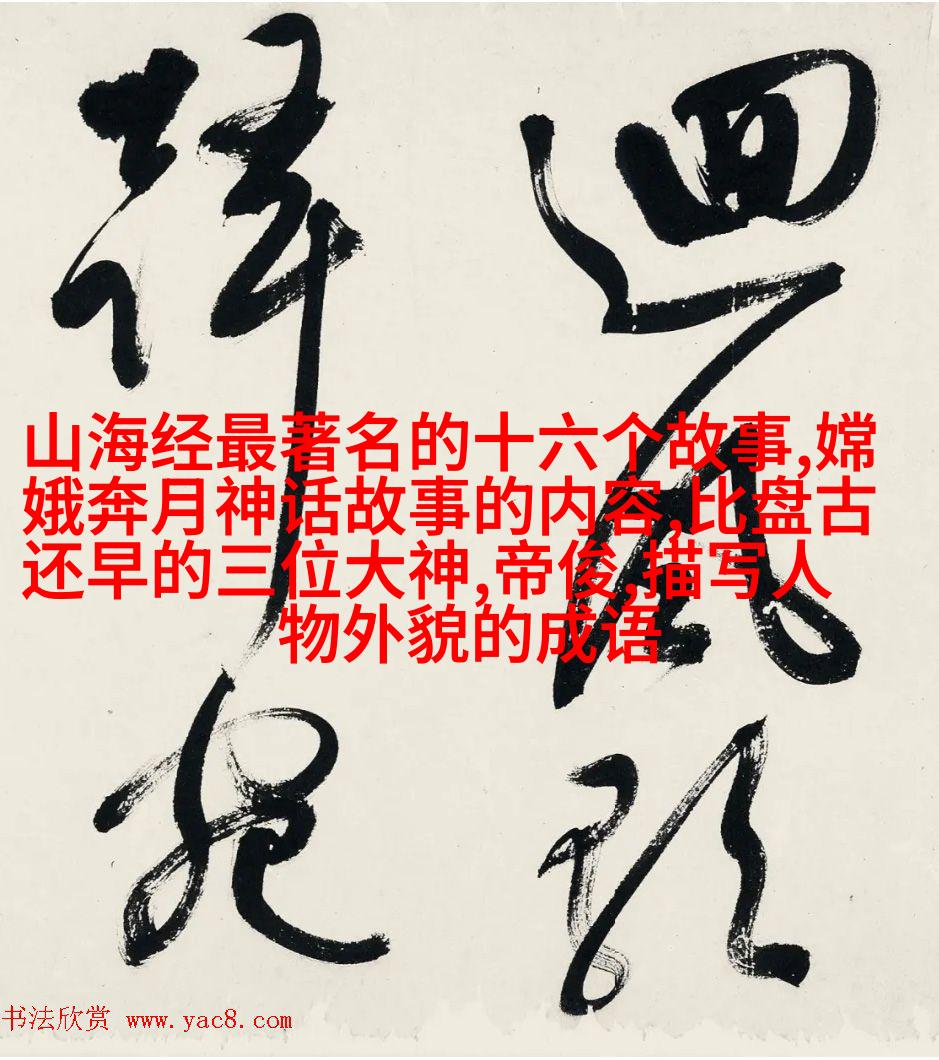 迴風
山海经最著名的十六个故事,嫦
娥奔月神话故事的内容,比盘古
还早的三位大神,帝俊,描写人
物外貌的成语
书法欣赏 www.yac8.com